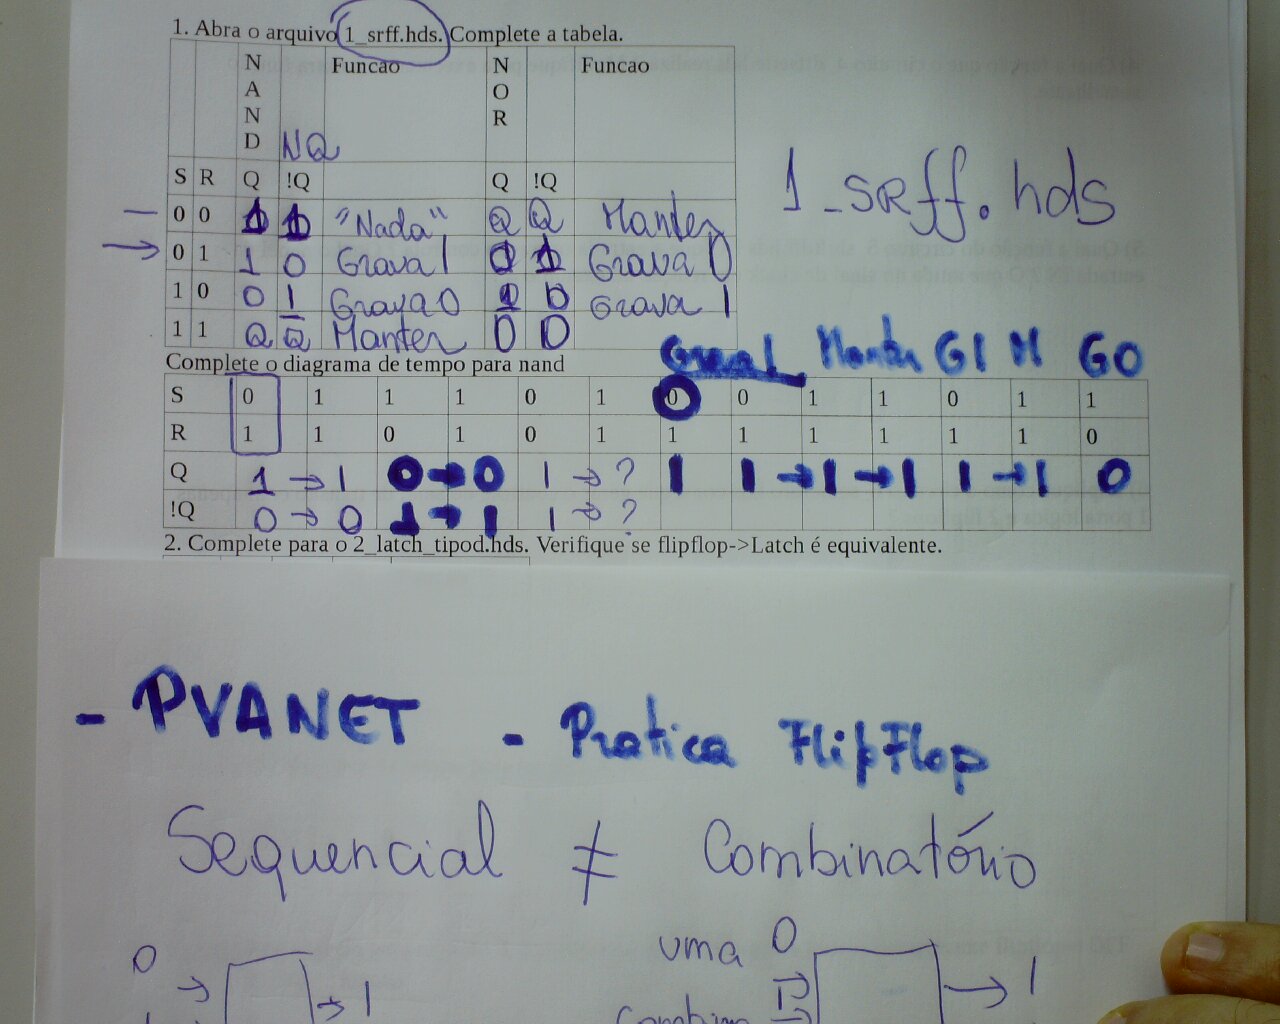 1. Abra o arquivo 1_srff.hds. Complete a tabela.
N A N D Funcao N O R Funcao
NQ
1_SRff.hds
S R Q !Q Q !Q
0 0 1 1 "Nada" Q Q̅ Manter
0 1 1 0 Grava 1 0 1 Grava 0
1 0 0 1 Grava 0 1 0 Grava 1
1 1 Q Q̅ Manter 0 0
Grava 1 Manter G1 M G0
Complete o diagrama de tempo para nand
S 0 1 1 1 0 1 0 0 1 1 0 1 1
R 1 1 0 1 0 1 1 1 1 1 1 1 0
Q 1 → 1 0 → 0 1 → ? 1 1 → 1 → 1 1 → 1 0
!Q 0 → 0 1 → 1 1 → ?
2. Complete para o 2_latch_tipod.hds. Verifique se flipflop->Latch é equivalente.
- PVANET - Pratica FlipFlop
Sequencial ≠ Combinatório
0 → 1 uma 0 → 1